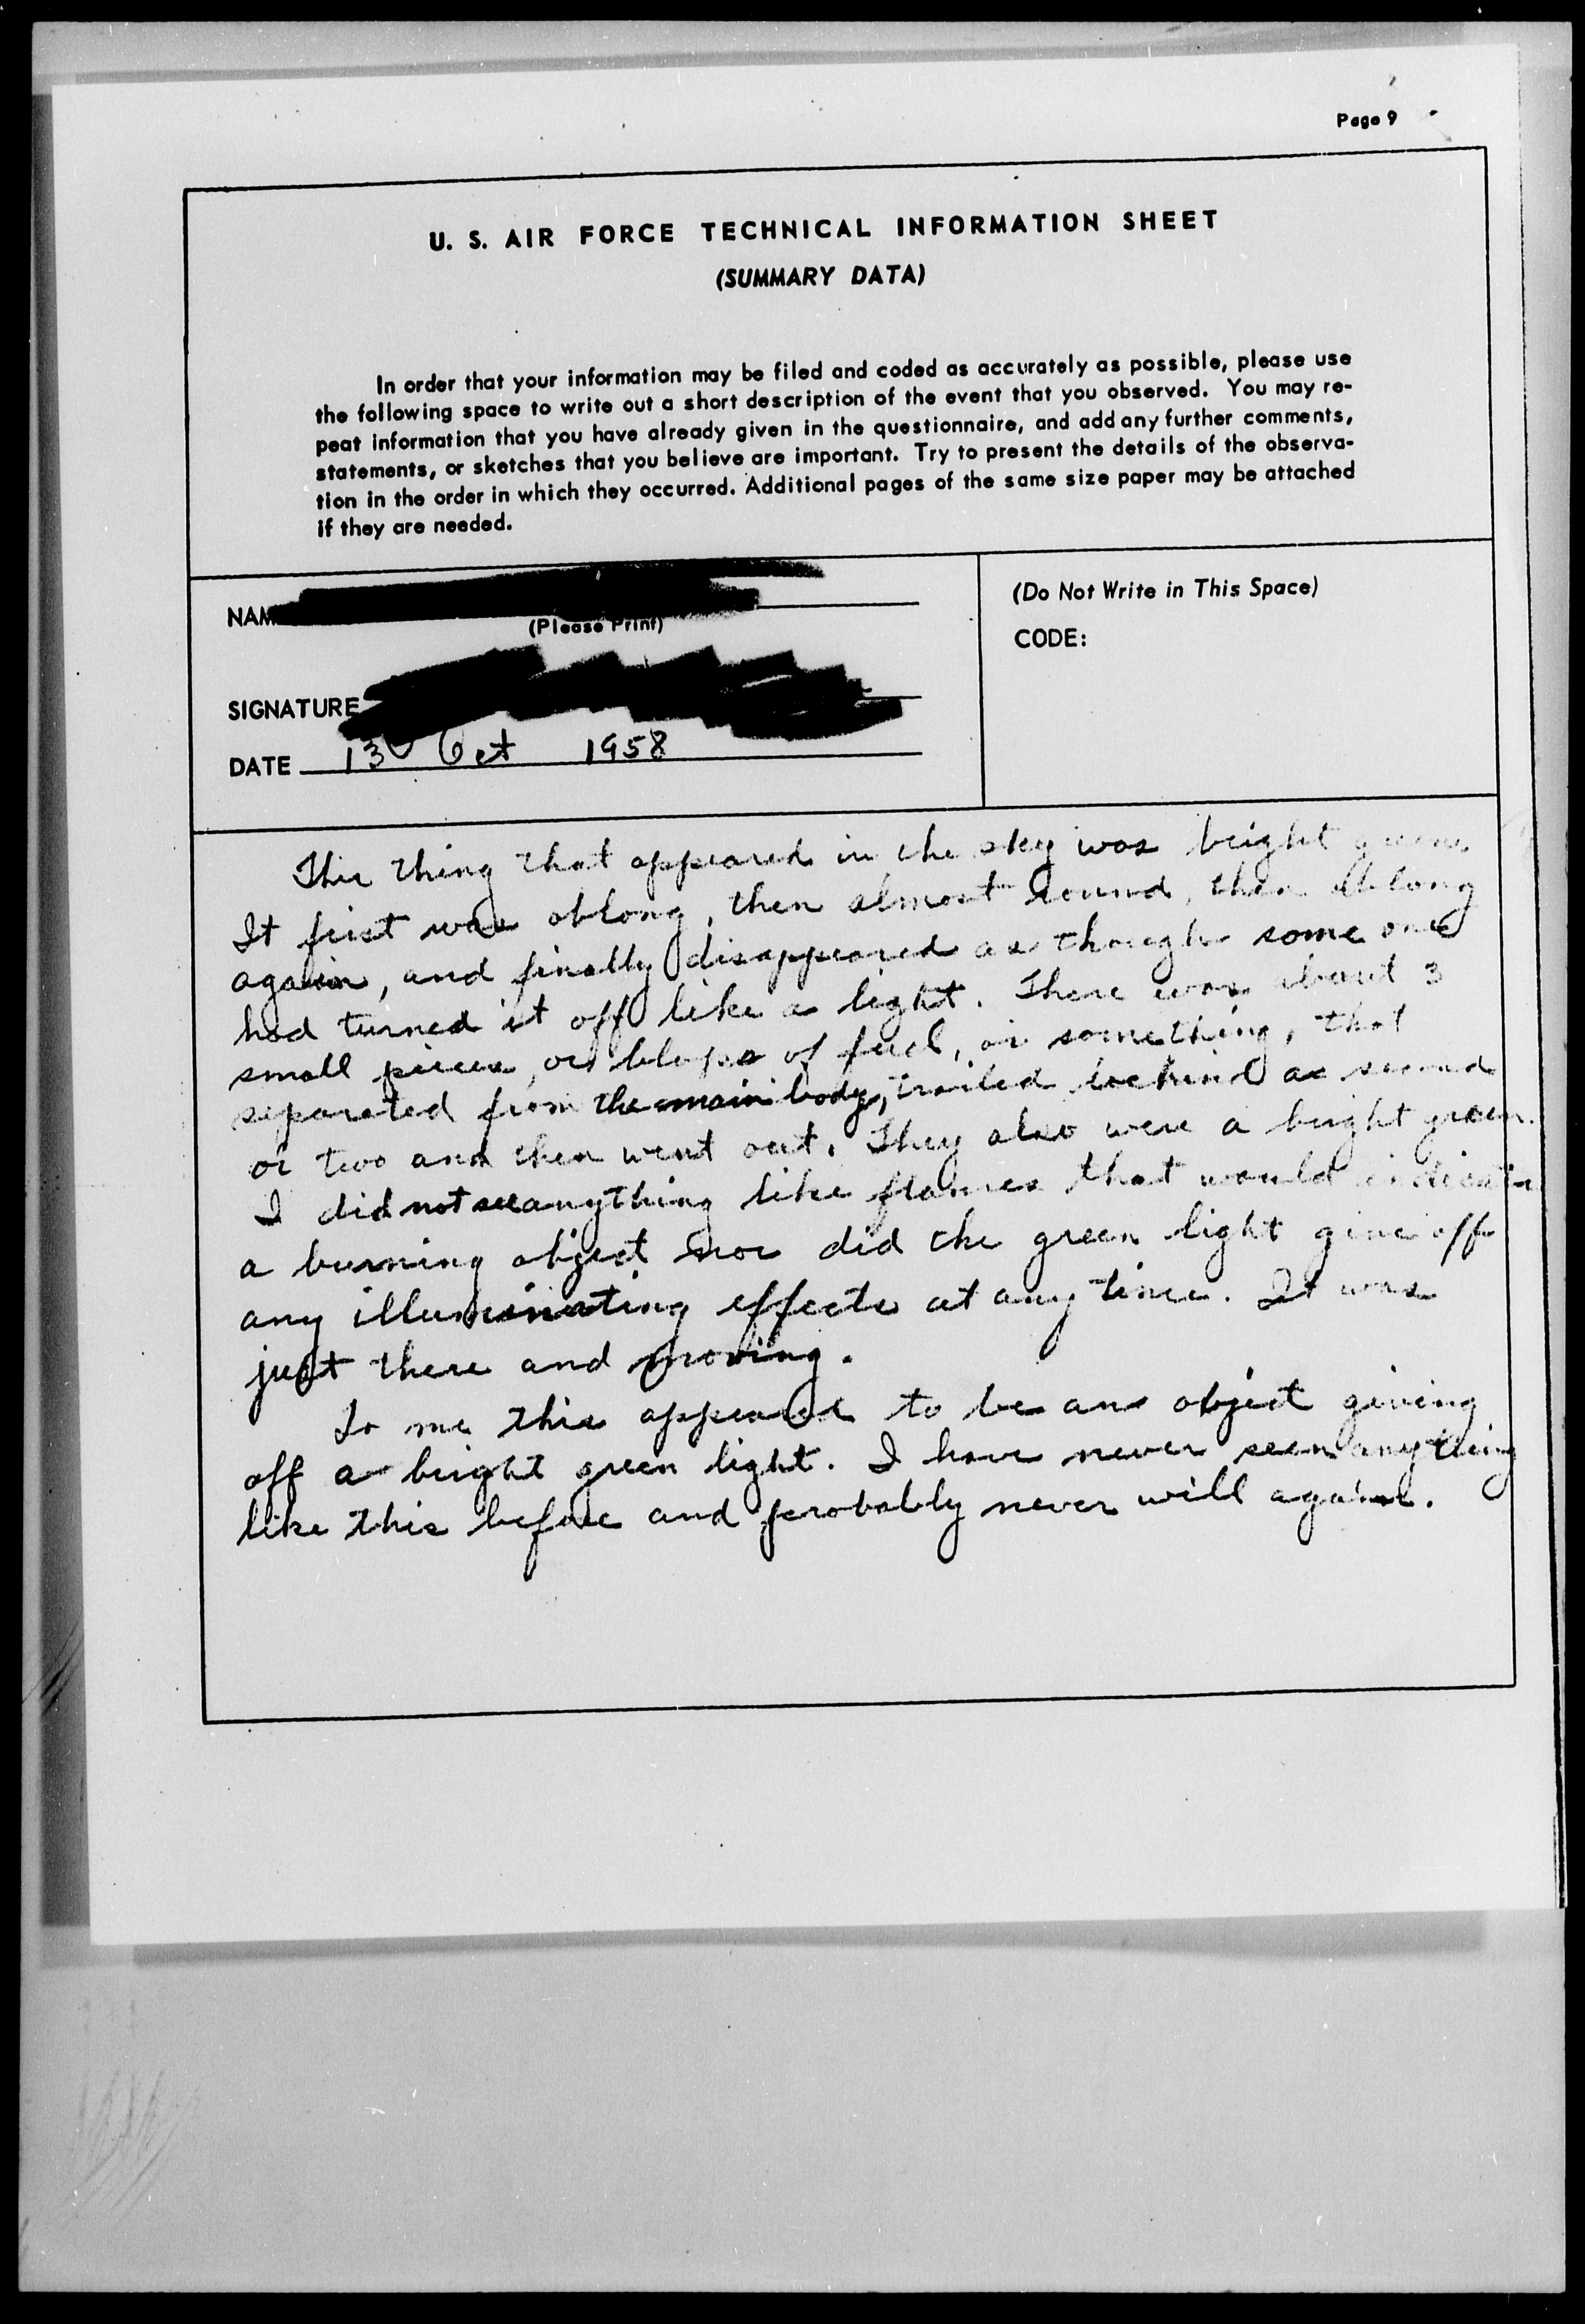 Page 9
U. S. AIR FORCE TECHNICAL INFORMATION SHEET
(SUMMARY DATA)
In order that your information may be filed and coded as accurately as possible, please use
the following space to write out a short description of the event that you observed. You may re-
peat information that you have already given in the questionnaire, and add any further comments,
statements, or sketches that you believe are important. Try to present the details of the observa-
tion in the order in which they occurred. Additional pages of the same size paper may be attached
if they are needed.
NAM
(Please Print)
SIGNATURE
DATE 13 Oct 1958
(Do Not Write in This Space)
CODE:
This thing that appeared in the sky was bright green.
It first was oblong, then almost round, then oblong
again, and finally disappeared as though some one
had turned it off like a light. There was about 3
small pieces, or blops of fuel, or something, that
separated from the main body, trailed behind a second
or two and then went out. They also were a bright green.
I did not see anything like flames that would indicate
a burning object nor did the green light give off
any illuminating effects at any time. It was
just there and moving.
To me this appeared to be an object giving
off a bright green light. I have never seen anything
like this before and probably never will again.